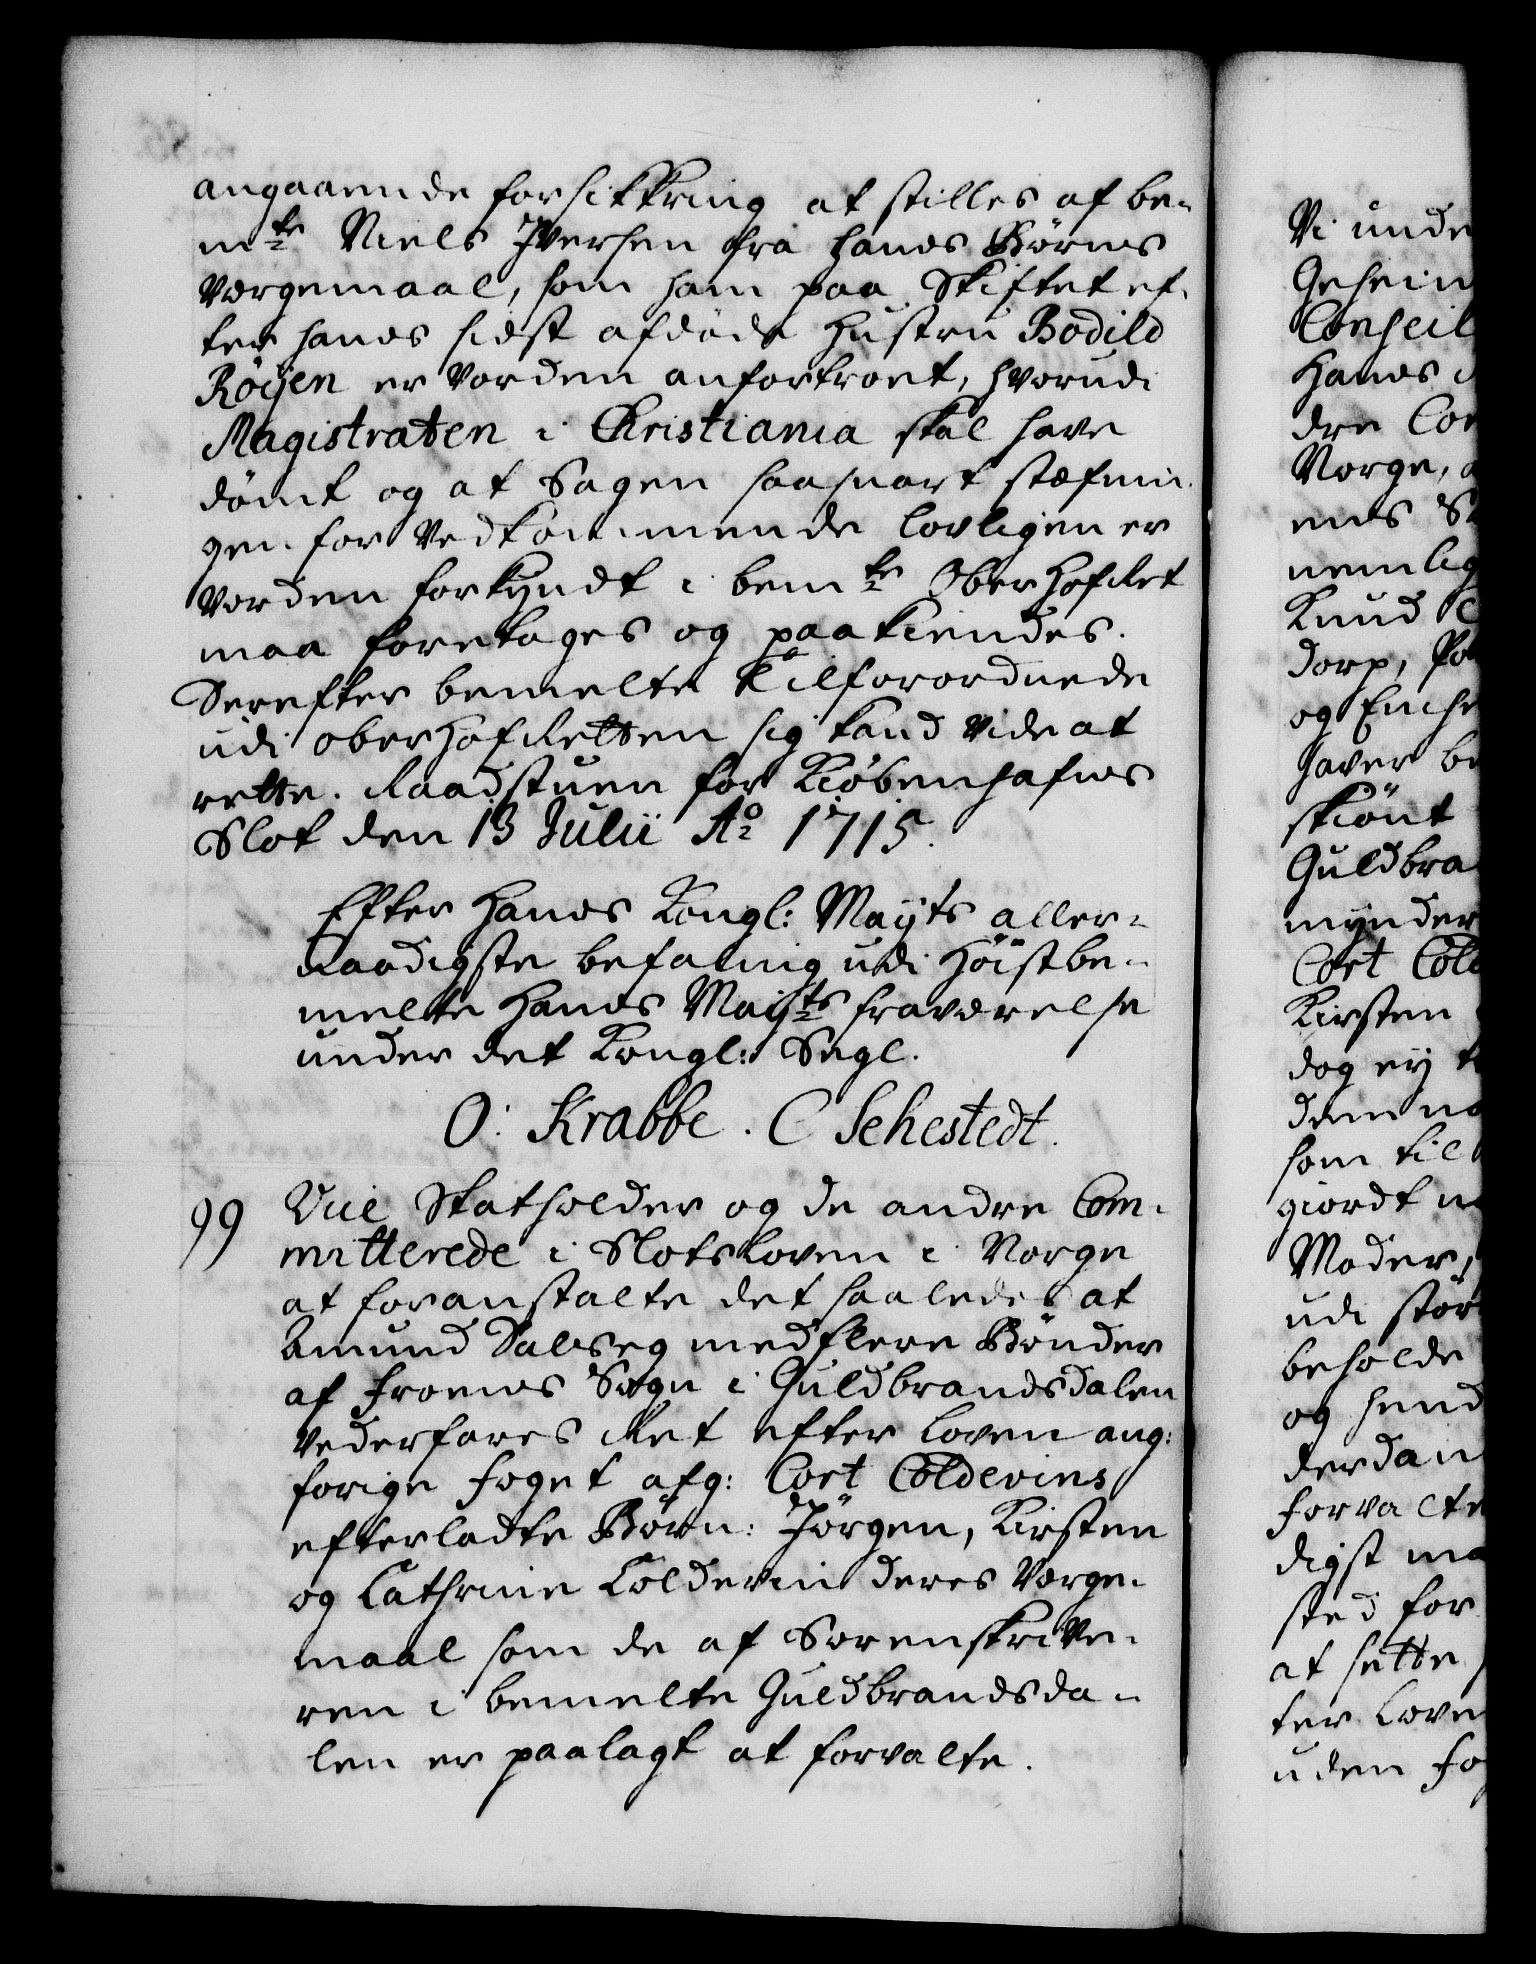 angaaende forsikkring at stilles af be-
mte Niels Iversen fra hands Børns
Værgemaal, som ham paa Skiftet ef-
ter hands sidst afdøde Hustru Bodild
Röÿen er vorden anfortroet, hvorudi
Magistraten i Christiania skal have
dömt og at Sagen saasnart stæfnin-
gen for Vedkommende lovligen er
vorden forkyndt i bemte Ober Hof Ret
maa foretages og paakiendes.
Derefter bemelte Tilforordnede
udi ober Hof Retten sig kand vide at
rette. Raadstuen for Kiöbenhafns
Slot den 13 Julii Ao 1715.
Efter Hands Kongl: Mayts aller-
naadigste befaling udi Höistbe-
melte Hands Mayts fraværelse
under det Kongl: Segl.
O: Krabbe. C Sehestedt.
99 Vice Statholder og de andre Com-
mitterede i Slotsloven i Norge
at foranstalte det saaledes at
Amund Dalseg med flere Bönder
af Froens Sogn i Guldbrandsdalen
vederfares Ret efter Loven ang:
forige Foget afg: Cort Coldevins
efterladte Börn: Jörgen, Kirsten
og Cathrine Coldevin deres Værge-
maal som de af Sorenskrive-
ren i bemelte Guldbrandsda-
len er paalagt at forvalte.
Vi unde
Geheim
Conseil
Hands
dre Com
Norge,
ens
nemlig
Knud
dorp,
og
haver be
skiönt
Guldbra
mynder
Cort Cold
Kirsten
dog eÿ
denne
som til
giordt
Moder,
udi stör
beholde
og hend
derdan
forvalte
digst ma
sted for
at sette
ter Love
uden